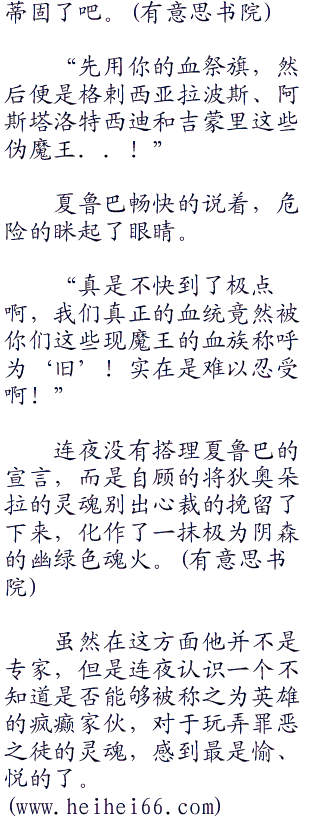 蒂固了吧。(有意思书院)
“先用你的血祭旗，然
后便是格剌西亚拉波斯、阿
斯塔洛特西迪和吉蒙里这些
伪魔王．．！”
夏鲁巴畅快的说着，危
险的眯起了眼睛。
“真是不快到了极点
啊，我们真正的血统竟然被
你们这些现魔王的血族称呼
为‘旧’！实在是难以忍受
啊！”
连夜没有搭理夏鲁巴的
宣言，而是自顾的将狄奥朵
拉的灵魂别出心裁的挽留了
下来，化作了一抹极为阴森
的幽绿色魂火。(有意思书
院)
虽然在这方面他并不是
专家，但是连夜认识一个不
知道是否能够被称之为英雄
的疯癫家伙，对于玩弄罪恶
之徒的灵魂，感到最是愉、
悦的了。
(www.heihei66.com)